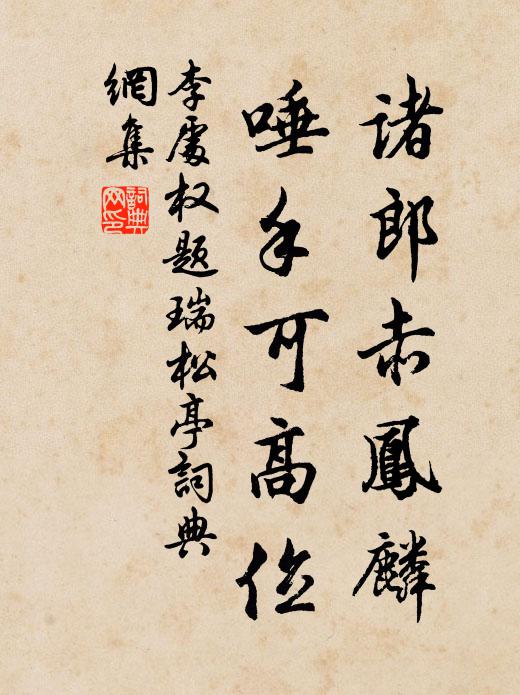 诸郎赤鳳麟
唾手可高位
李處权题瑞松亭詞典
網集
詞典
网印